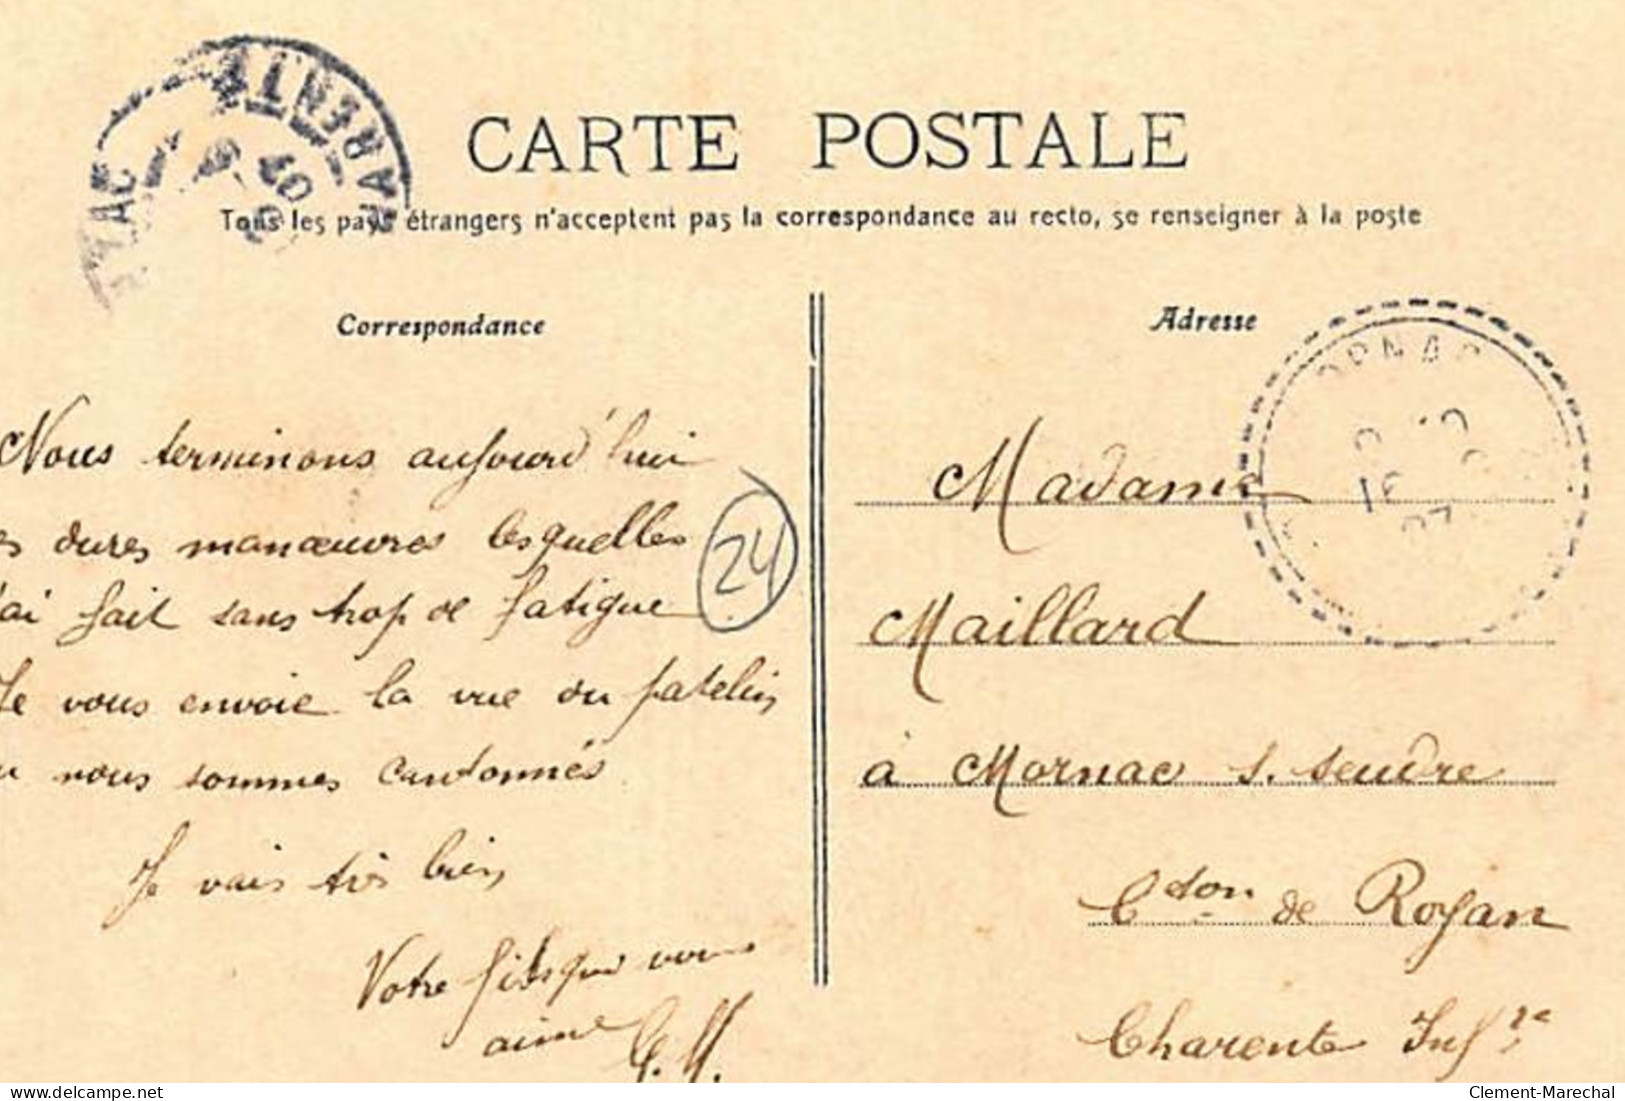 CARTE POSTALE
Tous les pays étrangers n'acceptent pas la correspondance au recto, se renseigner à la poste
Correspondance
Nous terminons aujourd'hui
es dures manœuvres lesquelles
'ai fait sans trop de fatigue
Je vous envoie la vue du patelin
nous sommes cantonnés
Je vais très bien
Votre fils que vous
aime G. M.
24
Adresse
Madame
Maillard
à Mornac s. Seudre
Cton de Royan
Charente Infre
07
16
Clement-Marechal